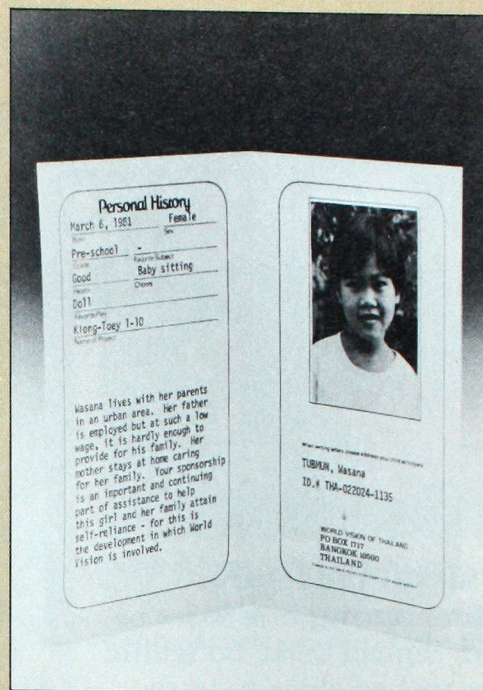 Personal History
March 6, 1981 Female
Born Sex
Pre-school -
Grade Favorite Subject
Good Baby sitting
Health Chores
Doll
Favorite Play
Klong-Toey 1-10
Name of Project
Wasana lives with her parents
in an urban area. Her father
is employed but at such a low
wage, it is hardly enough to
provide for his family. Her
mother stays at home caring
for her family. Your sponsorship
is an important and continuing
part of assistance to help
this girl and her family attain
self-reliance - for this is
the development in which World
Vision is involved.
When writing letters, please address your child as follows:
TUBMUN, Wasana
ID.# THA-022024-1135
WORLD VISION OF THAILAND
PO BOX 1717
BANGKOK 10500
THAILAND